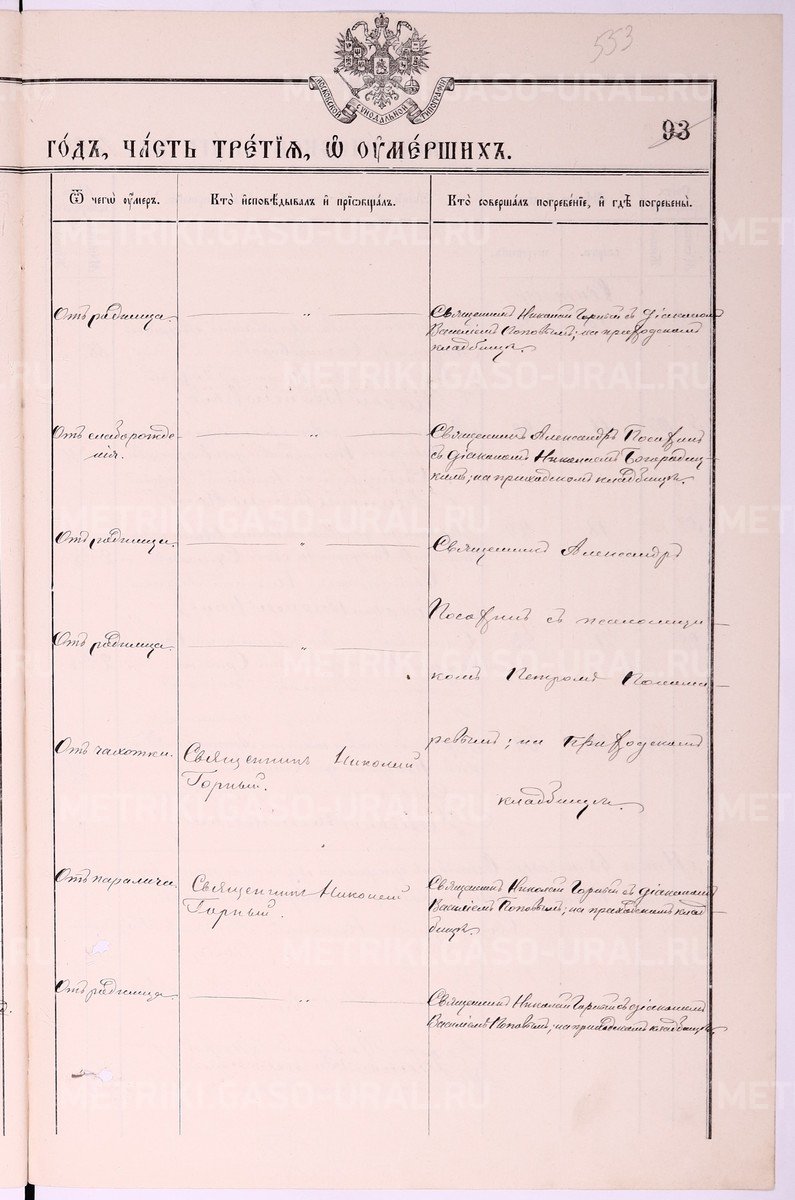 553
МОСКОВСКОЙ СУНОДАЛЬНОЙ ТИПОГРАФІИ
93
ГОДЪ, ЧАСТЬ ТРЕТІЯ, Ѽ ОУМЕРШИХЪ.
Ѿ чегѡ оумеръ.
Кто исповѣдывалъ и пріѡбщалъ.
Кто совершалъ погребеніе, и гдѣ погребены.
Отъ родимца. — " —
Священникъ Николай Горный съ діакономъ
Василіемъ Поповымъ; на приходскомъ
кладбищѣ.
Отъ слаборожде
нія. — " —
Священникъ Александръ
съ діакономъ Николаемъ Богородиц-
кимъ; на приходскомъ кладбищѣ.
Отъ родимца. — " —
Отъ родимца. — " —
Отъ чахотки.
Священникъ Николай
Горный.
Священникъ Александръ
съ псаломщи-
комъ Петромъ Понома-
ревымъ; на приходскомъ
кладбищѣ.
Отъ паралича.
Священникъ Николай
Горный.
Священникъ Николай Горный съ діакономъ
Василіемъ Поповымъ; на приходскомъ клад-
бищѣ.
Отъ родимца. — " —
Священникъ Николай Горный съ діакономъ
Василіемъ Поповымъ; на приходскомъ кладбищѣ.
METRIKI.GASO-URAL.RU